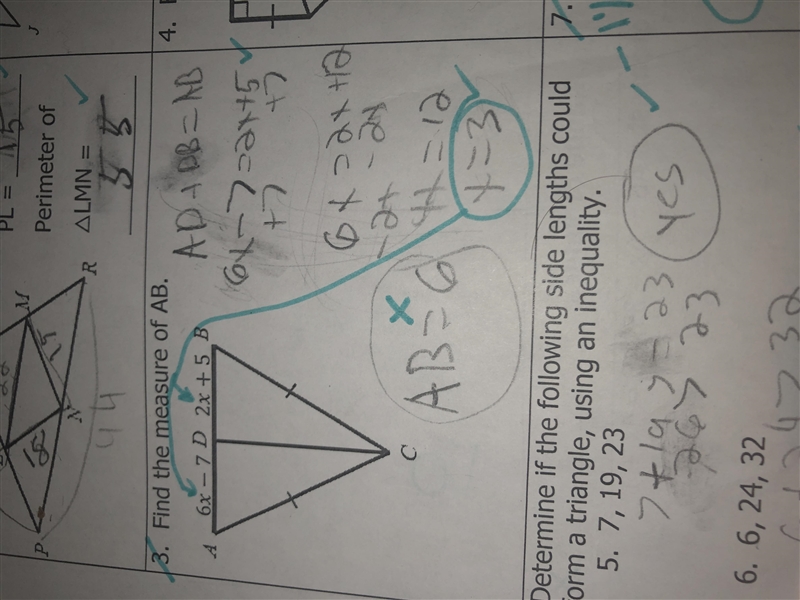 J
4.
7.
PL =
Perimeter of
△LMN =
55
M
R
N
P
44
3. Find the measure of AB.
A
6x − 7
D
2x + 5
B
C
AD + DB = AB
6x − 7 = 2x + 5
+7 +7
6x = 2x + 12
-2x -2x
4x = 12
x = 3
x
AB = 6
Determine if the following side lengths could
form a triangle, using an inequality.
5. 7, 19, 23
7 + 19 > = 23
26 > 23
yes
6. 6, 24, 32